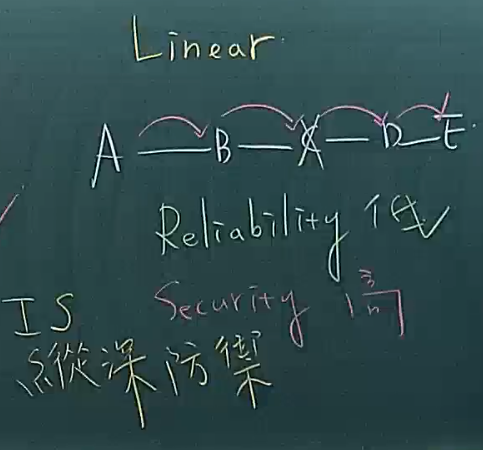 Linear
A — B — X — D — E
Reliability 低
Security 高
IS
縱深防禦